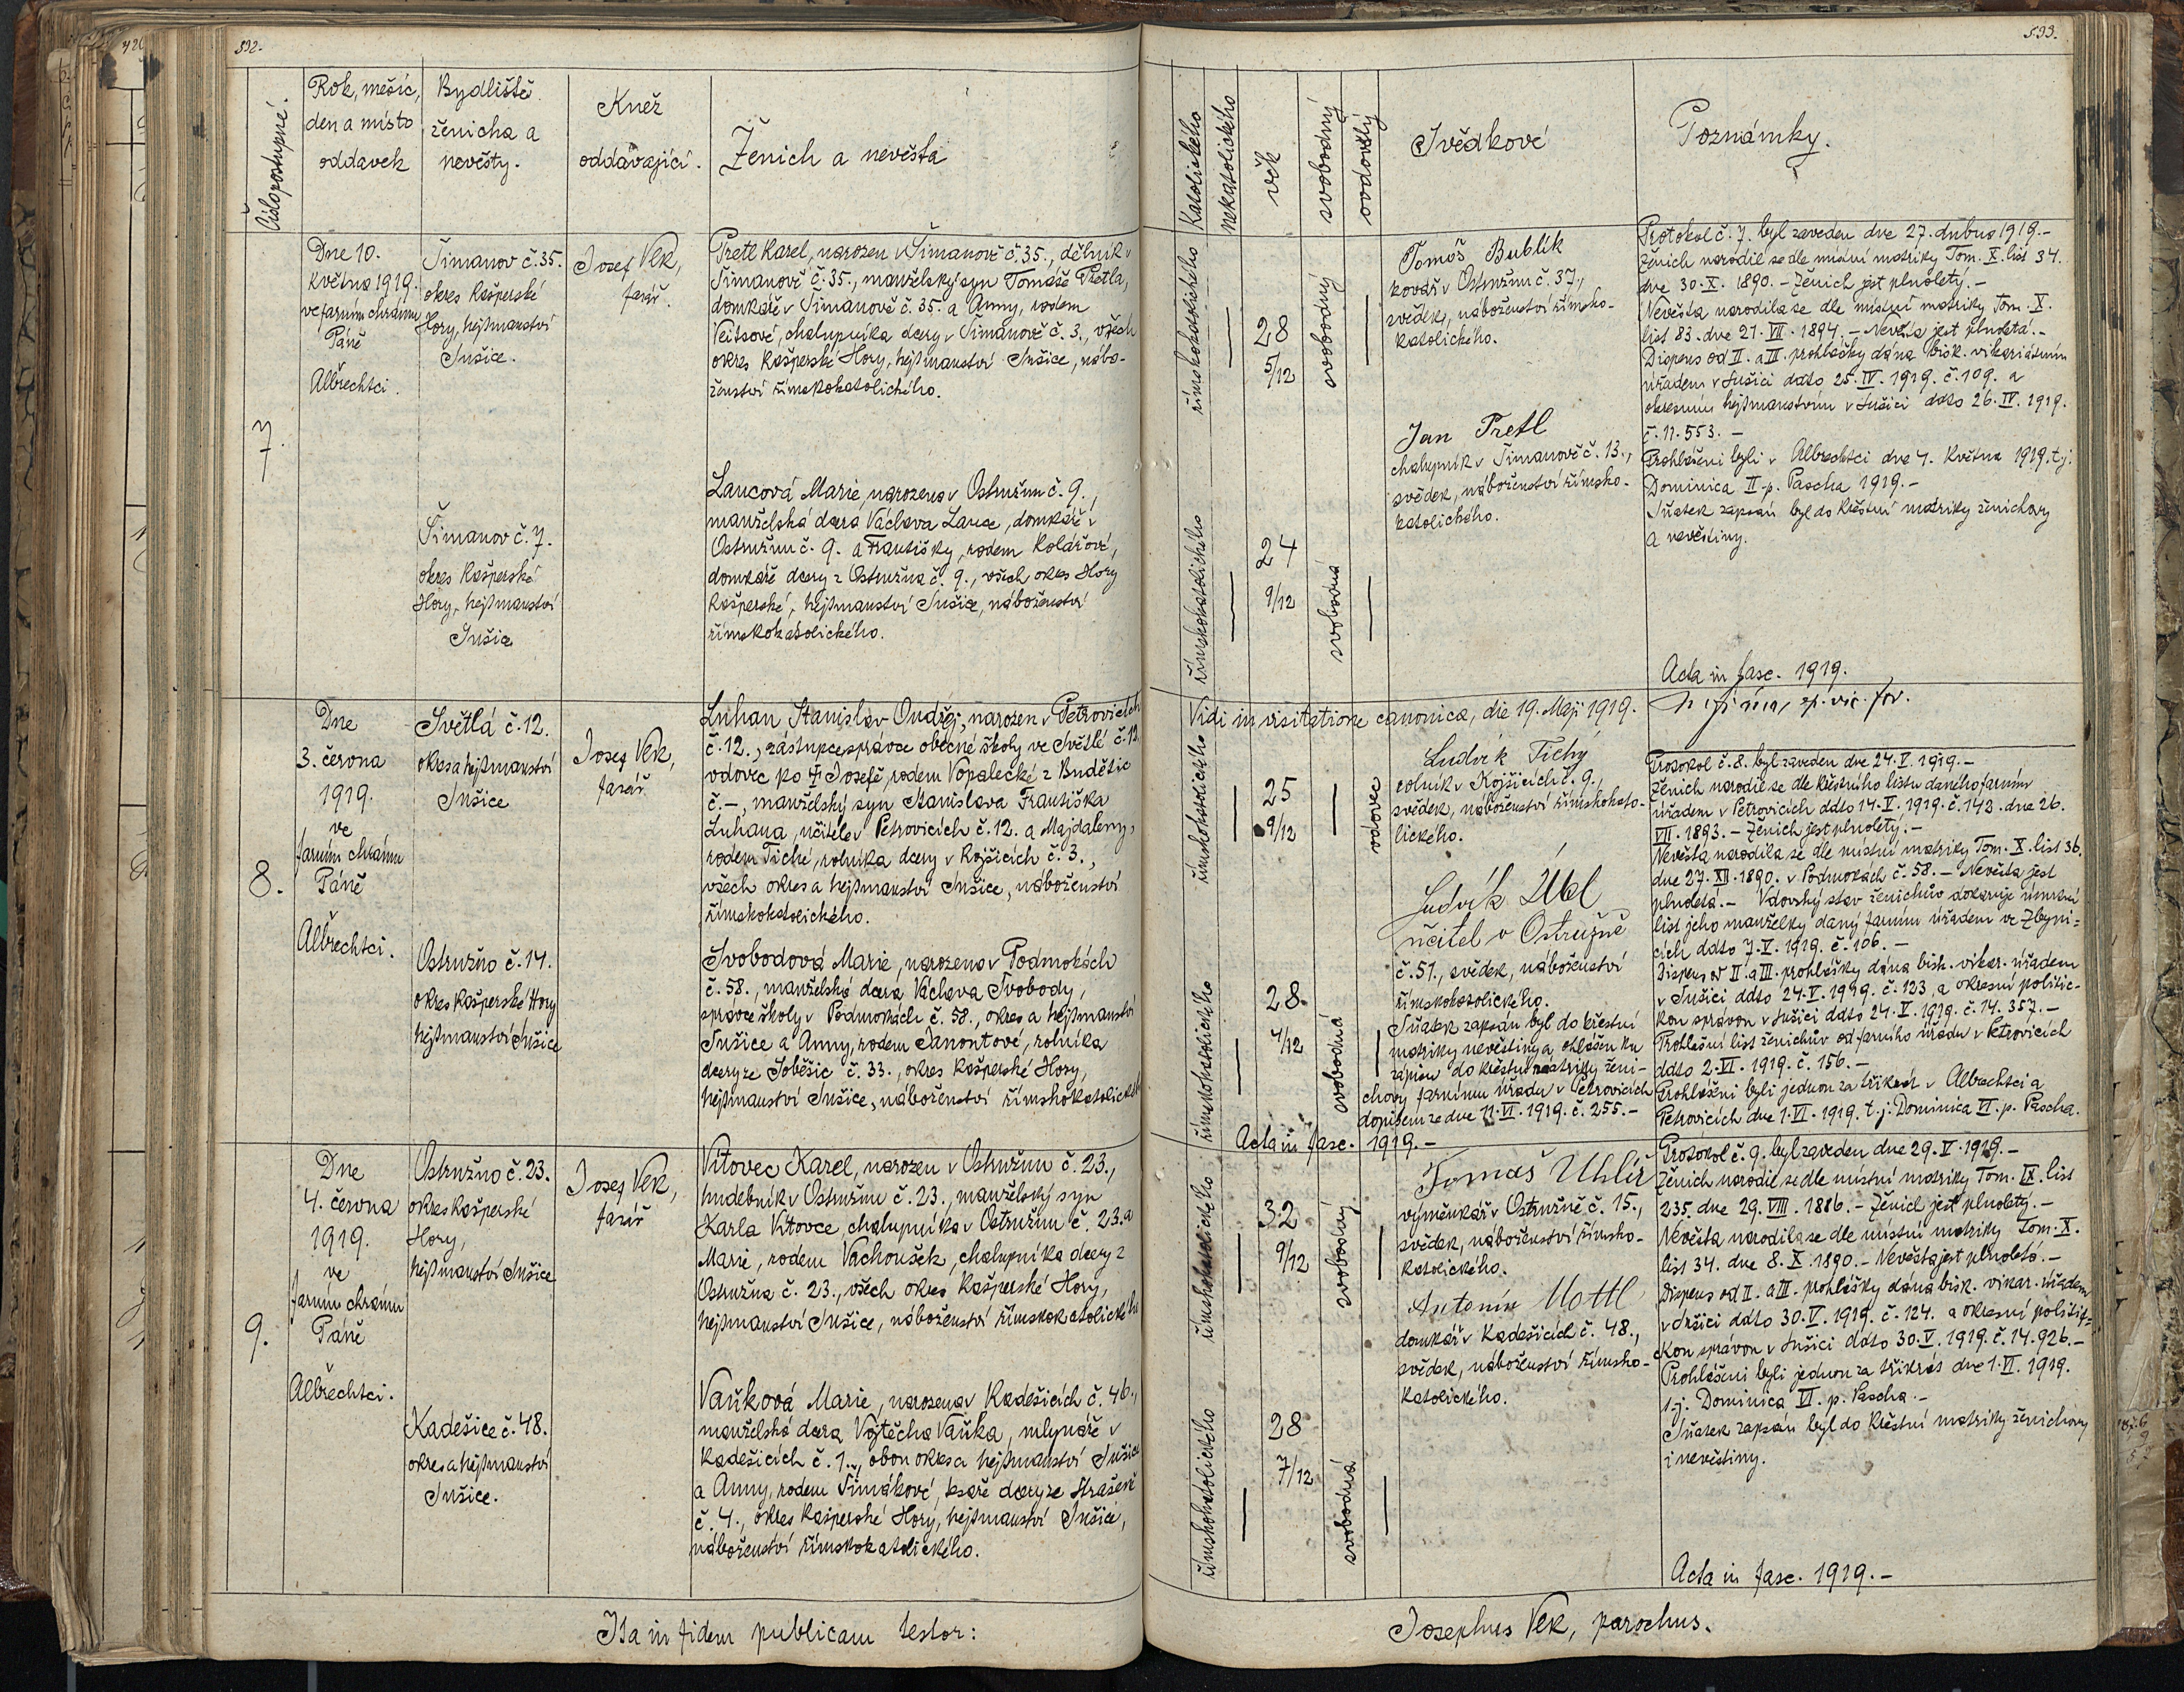 532.
Číslo postupné.
Rok, měsíc,
den a místo
oddavek
Bydliště
ženicha a
nevěsty.
Kněz
oddávající.
Ženich a nevěsta
7.
Dne 10.
Května 1919.
ve farním chrámu
Páně
Albrechtci.
Šimanov č. 35.
okres Kašperské
Hory, hejtmanství
Sušice.
Josef Vek,
farář.
Pretl Karel, narozen v Šimanově č. 35., dělník v
Šimanově č. 35., manželský syn Tomáše Pretla,
domkáře v Šimanově č. 35. a Anny, rodem
chalupníka dcery v Šimanově č. 3., všech
okres Kašperské Hory, hejtmanství Sušice, nábo-
ženství římskokatolického.
Šimanov č. 7.
okres Kašperské
Hory, hejtmanství
Sušice
Laucová Marie, narozena v Ostružnu č. 9.,
manželská dcera Václava Lauce, domkáře v
Ostružnu č. 9. a Františky, rodem Kolářové,
domkáře dcery z Ostružna č. 9., všech okres Hory
Kašperské, hejtmanství Sušice, náboženství
římskokatolického.
8.
Dne
3. června
1919.
ve
farním chrámu
Páně
Albrechtci.
Světlá č. 12.
okres a hejtmanství
Sušice
Josef Vek,
farář
Luhan Stanislav Ondřej, narozen v Petrovicích
č. 12., zástupce správce obecné školy ve Světlé č. 12.
vdovec po † Josefě, rodem Vopalecké z Budětic
č. –, manželský syn Stanislava Františka
Luhana, učitele v Petrovicích č. 12. a Majdaleny,
rodem Tiché, rolníka dcery v Kojšicích č. 3.,
všech okres a hejtmanství Sušice, náboženství
římskokatolického.
Ostružno č. 14.
okres Kašperské Hory
hejtmanství Sušice
Svobodová Marie, narozena v Podmokách
č. 58., manželská dcera Václava Svobody,
správce školy v Podmokách č. 58., okres a hejtmanství
Sušice a Anny, rodem Janontové, rolníka
dcery ze Soběšic č. 33., okres Kašperské Hory,
hejtmanství Sušice, náboženství římskokatolické
9.
Dne
4. června
1919.
ve
farním chrámu
Páně
Albrechtci.
Ostružno č. 23.
okres Kašperské
Hory,
hejtmanství Sušice
Josef Vek,
farář
Vítovec Karel, narozen v Ostružnu č. 23.,
hudebník v Ostružnu č. 23., manželský syn
Karla Vítovce, chalupníka v Ostružnu č. 23. a
Marie, rodem Vachoušek, chalupníka dcery z
Ostružna č. 23., všech okres Kašperské Hory,
hejtmanství Sušice, náboženství římskokatolického
Kadešice č. 48.
okres a hejtmanství
Sušice.
Vaňková Marie, narozena v Kadešicích č. 46.,
manželská dcera Vojtěcha Vaňka, mlynáře v
Kadešicích č. 1., obou okres a hejtmanství Sušice
a Anny, rodem Šimákové, dcery ze Strašeně
č. 4., okres Kašperské Hory, hejtmanství Sušice,
náboženství římskokatolického.
Ita in fidem publicam testor:
533.
Katolického
nekatolického
věk
svobodný
ovdovělý
Svědkové
Poznámky.
římskokatolického
28
5/12
svobodný
Tomáš Bublík
kovář v Ostružnu č. 37.,
svědek, náboženství římsko-
katolického.
Jan Pretl
chalupník v Šimanově č. 13.,
svědek, náboženství římsko-
katolického.
římskokatolického
24
9/12
svobodná
Protokol č. 7. byl zaveden dne 27. dubna 1919.–
Ženich narodil se dle místní matriky Tom. X. list 34.
dne 30. X. 1890. – Ženich jest plnoletý. –
Nevěsta narodila se dle místní matriky Tom. X.
list 83. dne 21. VII. 1894. – Nevěsta jest plnoletá. –
Dispens od II. a III. prohlášky dána bisk. vikariátním
úřadem v Sušici ddto 25. IV. 1919. č. 109. a
okresním hejtmanstvím v Sušici ddto 26. IV. 1919.
č. 11.553. –
Prohlášeni byli v Albrechtci dne 4. Května 1919. t.j.
Dominica II. p. Pascha 1919. –
Sňatek zapsán byl do křestní matriky ženichovy
a nevěstiny.
Acta in fasc. 1919.
Vidi in visitatione canonica, die 19. Maji 1919.
římskokatolického
25
9/12
vdovec
Ludvík Tichý
rolník v Kojšicích č. 9.,
svědek, náboženství římskokato-
lického.
Ludvík Úbl
učitel v Ostružně
č. 51., svědek, náboženství
římskokatolického.
Sňatek zapsán byl do křestní
matriky nevěstiny a ohlášen ku
zápisu do křestní matriky ženi-
chovy farnímu úřadu v Petrovicích
dopisem ze dne 11. VI. 1919. č. 255. –
římskokatolického
28.
4/12
svobodná
Acta in fasc. 1919. –
Protokol č. 8. byl zaveden dne 24. V. 1919. –
Ženich narodil se dle křestního listu daného farním
úřadem v Petrovicích ddto 14. V. 1919. č. 143. dne 26.
VII. 1893. – Ženich jest plnoletý. –
Nevěsta narodila se dle místní matriky Tom. X. list 36.
dne 27. XII. 1890. v Podmokách č. 58. – Nevěsta jest
plnoletá. – Vdovský stav ženichův dokazuje úmrtní
list jeho manželky daný farním úřadem ve Zbyni-
cích ddto 7. V. 1919. č. 106. –
Dispens od II. a III. prohlášky dána bisk. vikar. úřadem
v Sušici ddto 24. V. 1919. č. 123. a okresní politic-
kou správou v Sušici ddto 24. V. 1919. č. 14.357. –
Prohlašní list ženichův od farního úřadu v Petrovicích
ddto 2. VI. 1919. č. 156. –
Prohlášeni byli jednou za třikrát v Albrechtci a
Petrovicích dne 1. VI. 1919. t.j. Dominica VI. p. Pascha.
římskokatolického
32
9/12
svobodný
Tomáš Uhlíř
výměnkář v Ostružně č. 15.,
svědek, náboženství římsko-
katolického.
Antonín Mottl
domkář v Kadešicích č. 48.,
svědek, náboženství římsko-
katolického.
římskokatolického
28
7/12
svobodná
Protokol č. 9. byl zaveden dne 29. V. 1919. –
Ženich narodil se dle místní matriky Tom. IX. list
235. dne 29. VIII. 1886. – Ženich jest plnoletý. –
Nevěsta narodila se dle místní matriky Tom. X.
list 34. dne 8. X. 1890. – Nevěsta jest plnoletá. –
Dispens od II. a III. prohlášky dána bisk. vikar. úřadem
v Sušici ddto 30. V. 1919. č. 124. a okresní politic-
kou správou v Sušici ddto 30. V. 1919. č. 14.926. –
Prohlášeni byli jednou za třikrát dne 1. VI. 1919.
t.j. Dominica VI. p. Pascha. –
Sňatek zapsán byl do křestní matriky ženichovy
i nevěstiny.
Acta in fasc. 1919. –
Josephus Vek, parochus.